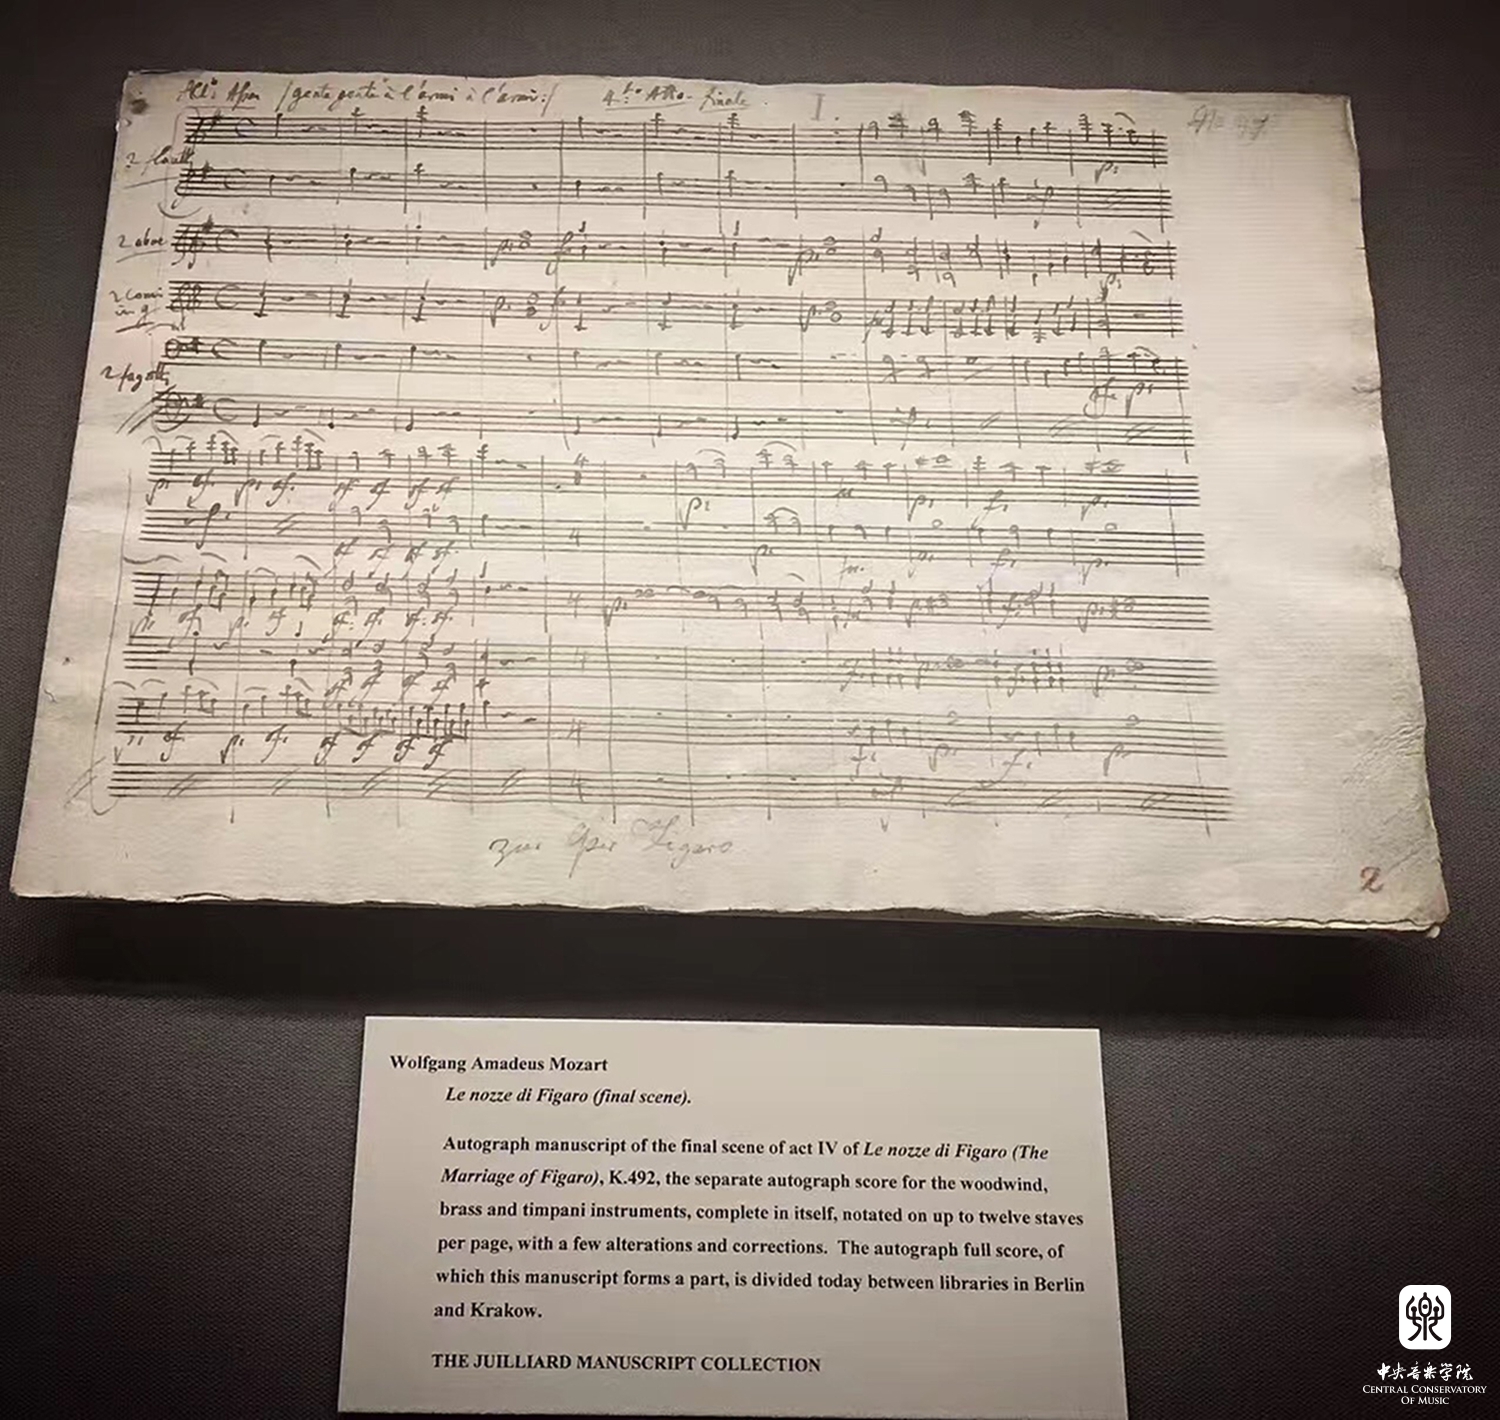 All:° Assai /gente gente à l'armi à l'armi:/ 4:to Atto. finale.
2 flauti
2 oboe
2 Corni
in g
2 fagotti
zur Oper Figaro
2
Wolfgang Amadeus Mozart
Le nozze di Figaro (final scene).
Autograph manuscript of the final scene of act IV of Le nozze di Figaro (The
Marriage of Figaro), K.492, the separate autograph score for the woodwind,
brass and timpani instruments, complete in itself, notated on up to twelve staves
per page, with a few alterations and corrections. The autograph full score, of
which this manuscript forms a part, is divided today between libraries in Berlin
and Krakow.
THE JUILLIARD MANUSCRIPT COLLECTION
中央音乐学院
CENTRAL CONSERVATORY
OF MUSIC